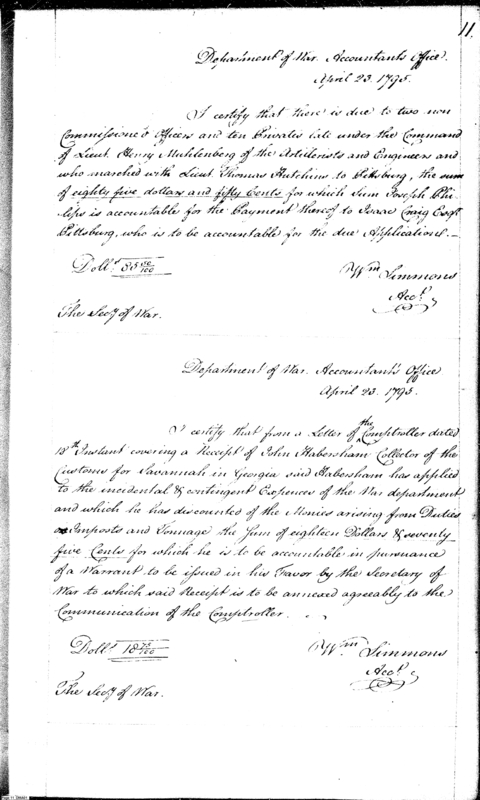 11.
Department of War. Accountants Office.
April 23. 1795.
I certify that there is due to two non
Commissione'd Officers and ten Privates late under the Command
of Lieut. Henry Muhlenberg of the Artillerists and Engineers and
who marched with Lieut. Thomas Hutchins to Pittsburg, the sum
of eighty five dollars and fifty Cents for which Sum Joseph Phi-
lips is accountable for the Payment thereof to Isaac Craig Esqr.
Pittsburg, who is to be accountable for the due Application.—
Dolls. 85 50/100
Wm Simmons
Acct.
The Secy of War.
Department of War. Accountant's Office
April 23. 1795.
I certify that from a Letter of the Comptroller dated
18th Instant covering a Receipt of John Habersham Collector of the
Customs for Savannah in Georgia said Habersham has applied
to the incidental & contingent Expences of the War department
and which he has discounted of the Monies arising from Duties
on Imposts and Tonnage the Sum of eighteen Dollars & seventy
five Cents for which he is to be accountable in pursuance
of a Warrant to be issued in his Favor by the Secretary of
War to which said Receipt is to be annexed agreably to the
Communication of the Comptroller.
Dolls. 18 75/100
Wm Simmons
Acct.
The Secy of War.